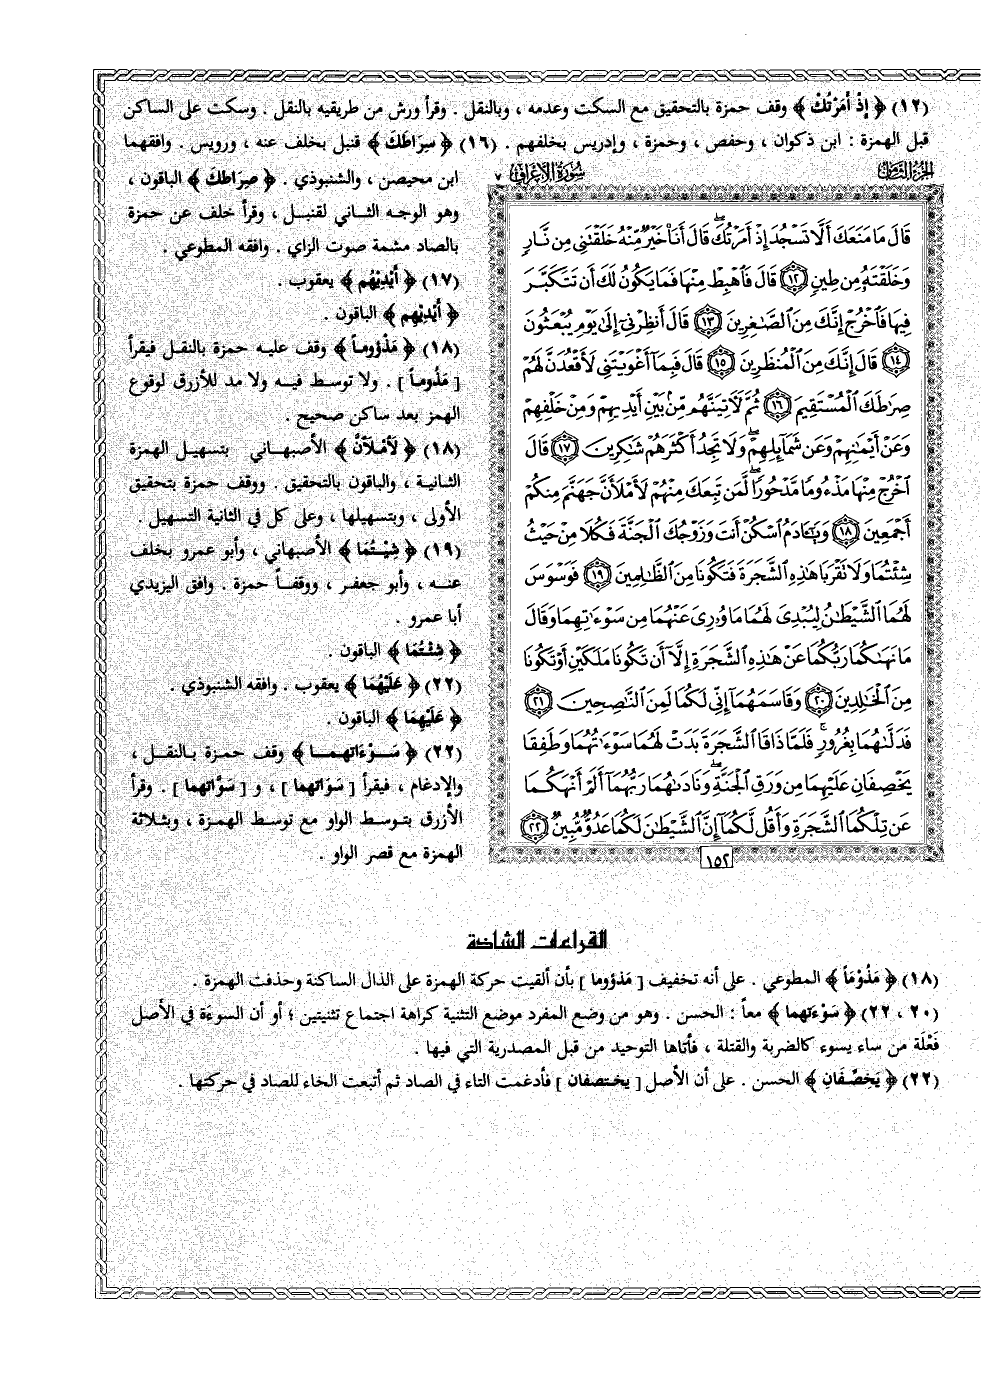 (١٢) ﴿ إِذْ أَمَرْتُكَ ﴾ وقف حمزة بالتحقيق مع السكت وعدمه ، وبالنقل . وقرأ ورش من طريقيه بالنقل . وسكت على الساكن
قبل الهمزة : ابن ذكوان ، وحفص ، وحمزة ، وإدريس بخلفهم . (١٦) ﴿ سِرَاطَكَ ﴾ قنبل بخلف عنه ، ورويس . وافقهما
ابن محيصن ، والشنبوذي . ﴿ صِرَاطَكَ ﴾ الباقون ،
وهو الوجه الثاني لقنبل ، وقرأ خلف عن حمزة
بالصاد مشمة صوت الزاي . وافقه المطوعي .
(١٧) ﴿ أَيْدِيهُم ﴾ يعقوب .
﴿ أَيْدِيْهِم ﴾ الباقون .
(١٨) ﴿ مَذْؤوماً ﴾ وقف عليه حمزة بالنقل فيقرأ
[ مَذُوماً ] . ولا توسط فيه ولا مد للأزرق لوقوع
الهمز بعد ساكن صحيح .
(١٨) ﴿ لَأَمْلَأَنَّ ﴾ الأصبهاني بتسهيل الهمزة
الثانية ، والباقون بالتحقيق . ووقف حمزة بتحقيق
الأولى ، وبتسهيلها ، وعلى كل في الثانية التسهيل .
(١٩) ﴿ شِيْتُمَا ﴾ الأصبهاني ، وأبو عمرو بخلف
عنه ، وأبو جعفر ، ووقفاً حمزة . وافق اليزيدي
أبا عمرو .
﴿ شِئْتُمَا ﴾ الباقون .
(٢٢) ﴿ عَلَيْهُمَا ﴾ يعقوب . وافقه الشنبوذي .
﴿ عَلَيْهِمَا ﴾ الباقون .
(٢٢) ﴿ سَوْءَاتهما ﴾ وقف حمزة بالنقل ،
والإدغام ، فيقرأ [ سَوَاتهما ] ، و [ سَوَّاتهما ] . وقرأ
الأزرق بتوسط الواو مع توسط الهمزة ، وبثلاثة
الهمزة مع قصر الواو .
سُورَةُ الأَعْرَافِ ٧
قَالَ مَا مَنَعَكَ أَلَّا تَسْجُدَ إِذْ أَمَرْتُكَ ۖ قَالَ أَنَا۠ خَيْرٌ مِّنْهُ خَلَقْتَنِي مِن نَّارٍ
وَخَلَقْتَهُۥ مِن طِينٍ ﴿١٢﴾ قَالَ فَٱهْبِطْ مِنْهَا فَمَا يَكُونُ لَكَ أَن تَتَكَبَّرَ
فِيهَا فَٱخْرُجْ إِنَّكَ مِنَ ٱلصَّٰغِرِينَ ﴿١٣﴾ قَالَ أَنظِرْنِيٓ إِلَىٰ يَوْمِ يُبْعَثُونَ
﴿١٤﴾ قَالَ إِنَّكَ مِنَ ٱلْمُنظَرِينَ ﴿١٥﴾ قَالَ فَبِمَآ أَغْوَيْتَنِي لَأَقْعُدَنَّ لَهُمْ
صِرَٰطَكَ ٱلْمُسْتَقِيمَ ﴿١٦﴾ ثُمَّ لَءَاتِيَنَّهُم مِّنۢ بَيْنِ أَيْدِيهِمْ وَمِنْ خَلْفِهِمْ
وَعَنْ أَيْمَٰنِهِمْ وَعَن شَمَآئِلِهِمْ ۖ وَلَا تَجِدُ أَكْثَرَهُمْ شَٰكِرِينَ ﴿١٧﴾ قَالَ
ٱخْرُجْ مِنْهَا مَذْءُومًا مَّدْحُورًا ۖ لَّمَن تَبِعَكَ مِنْهُمْ لَأَمْلَأَنَّ جَهَنَّمَ مِنكُمْ
أَجْمَعِينَ ﴿١٨﴾ وَيَٰٓـَٔادَمُ ٱسْكُنْ أَنتَ وَزَوْجُكَ ٱلْجَنَّةَ فَكُلَا مِنْ حَيْثُ
شِئْتُمَا وَلَا تَقْرَبَا هَٰذِهِ ٱلشَّجَرَةَ فَتَكُونَا مِنَ ٱلظَّٰلِمِينَ ﴿١٩﴾ فَوَسْوَسَ
لَهُمَا ٱلشَّيْطَٰنُ لِيُبْدِيَ لَهُمَا مَا وُۥرِيَ عَنْهُمَا مِن سَوْءَٰتِهِمَا وَقَالَ
مَا نَهَىٰكُمَا رَبُّكُمَا عَنْ هَٰذِهِ ٱلشَّجَرَةِ إِلَّآ أَن تَكُونَا مَلَكَيْنِ أَوْ تَكُونَا
مِنَ ٱلْخَٰلِدِينَ ﴿٢٠﴾ وَقَاسَمَهُمَآ إِنِّي لَكُمَا لَمِنَ ٱلنَّٰصِحِينَ ﴿٢١﴾
فَدَلَّىٰهُمَا بِغُرُورٍ ۚ فَلَمَّا ذَاقَا ٱلشَّجَرَةَ بَدَتْ لَهُمَا سَوْءَٰتُهُمَا وَطَفِقَا
يَخْصِفَانِ عَلَيْهِمَا مِن وَرَقِ ٱلْجَنَّةِ ۖ وَنَادَىٰهُمَا رَبُّهُمَآ أَلَمْ أَنْهَكُمَا
عَن تِلْكُمَا ٱلشَّجَرَةِ وَأَقُل لَّكُمَآ إِنَّ ٱلشَّيْطَٰنَ لَكُمَا عَدُوٌّ مُّبِينٌ ﴿٢٢﴾
١٥٢
القراءات الشاذة
(١٨) ﴿ مَذُوْمَاً ﴾ المطوعي . على أنه تخفيف [ مَذؤوما ] بأن ألقيت حركة الهمزة على الذال الساكنة وحذفت الهمزة .
(٢٠ ، ٢٢) ﴿ سَوْءَتهما ﴾ معاً : الحسن . وهو من وضع المفرد موضع التثنية كراهة اجتماع تثنيتين ؛ أو أن السوءَة في الأصل
فَعْلَة من ساء يسوء كالضربة والقتلة ، فأتاها التوحيد من قبل المصدرية التي فيها .
(٢٢) ﴿ يَخِصِّفَانِ ﴾ الحسن . على أن الأصل [ يختصفان ] فأدغمت التاء في الصاد ثم أتبعت الخاء للصاد في حركتها .